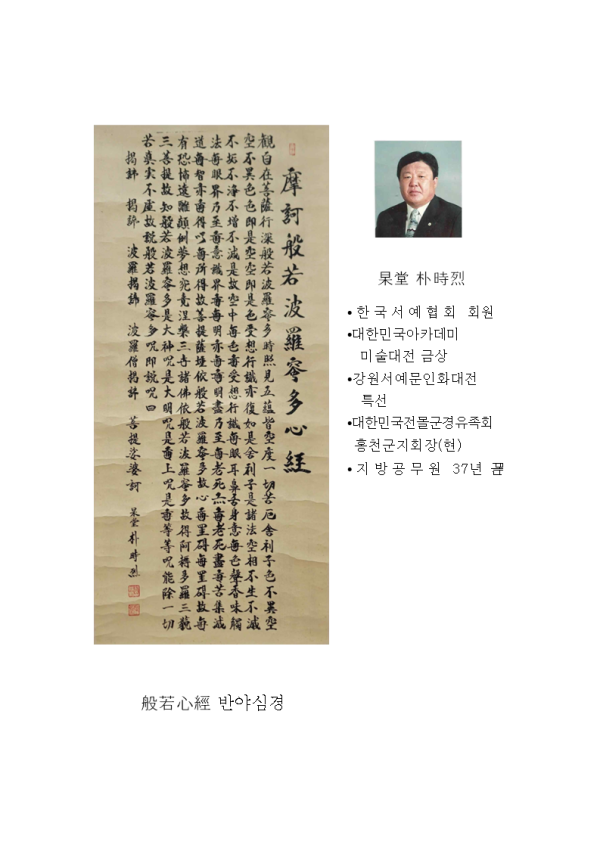 摩訶般若波羅蜜多心經
觀自在菩薩行深般若波羅蜜多時照見五蘊皆空度一切苦厄舍利子色不異空
空不異色色即是空空即是色受想行識亦復如是舍利子是諸法空相不生不滅
不垢不淨不增不減是故空中無色無受想行識無眼耳鼻舌身意無色聲香味觸
法無眼界乃至無意識界無無明亦無無明盡乃至無老死亦無老死盡無苦集滅
道無智亦無得以無所得故菩提薩埵依般若波羅蜜多故心無罣碍無罣碍故無
有恐怖遠離顚倒夢想究竟涅槃三世諸佛依般若波羅蜜多故得阿耨多羅三藐
三菩提故知般若波羅蜜多是大神呪是大明呪是無上呪是無等等呪能除一切
苦眞實不虛故說般若波羅蜜多呪即說呪曰
揭諦 揭諦 波羅揭諦 波羅僧揭諦 菩提娑婆訶 杲堂 朴時烈
杲堂 朴時烈
•한국서예협회 회원
•대한민국아카데미
미술대전 금상
•강원서예문인화대전
특선
•대한민국전몰군경유족회
홍천군지회장(현)
•지방공무원 37년
般若心經 반야심경